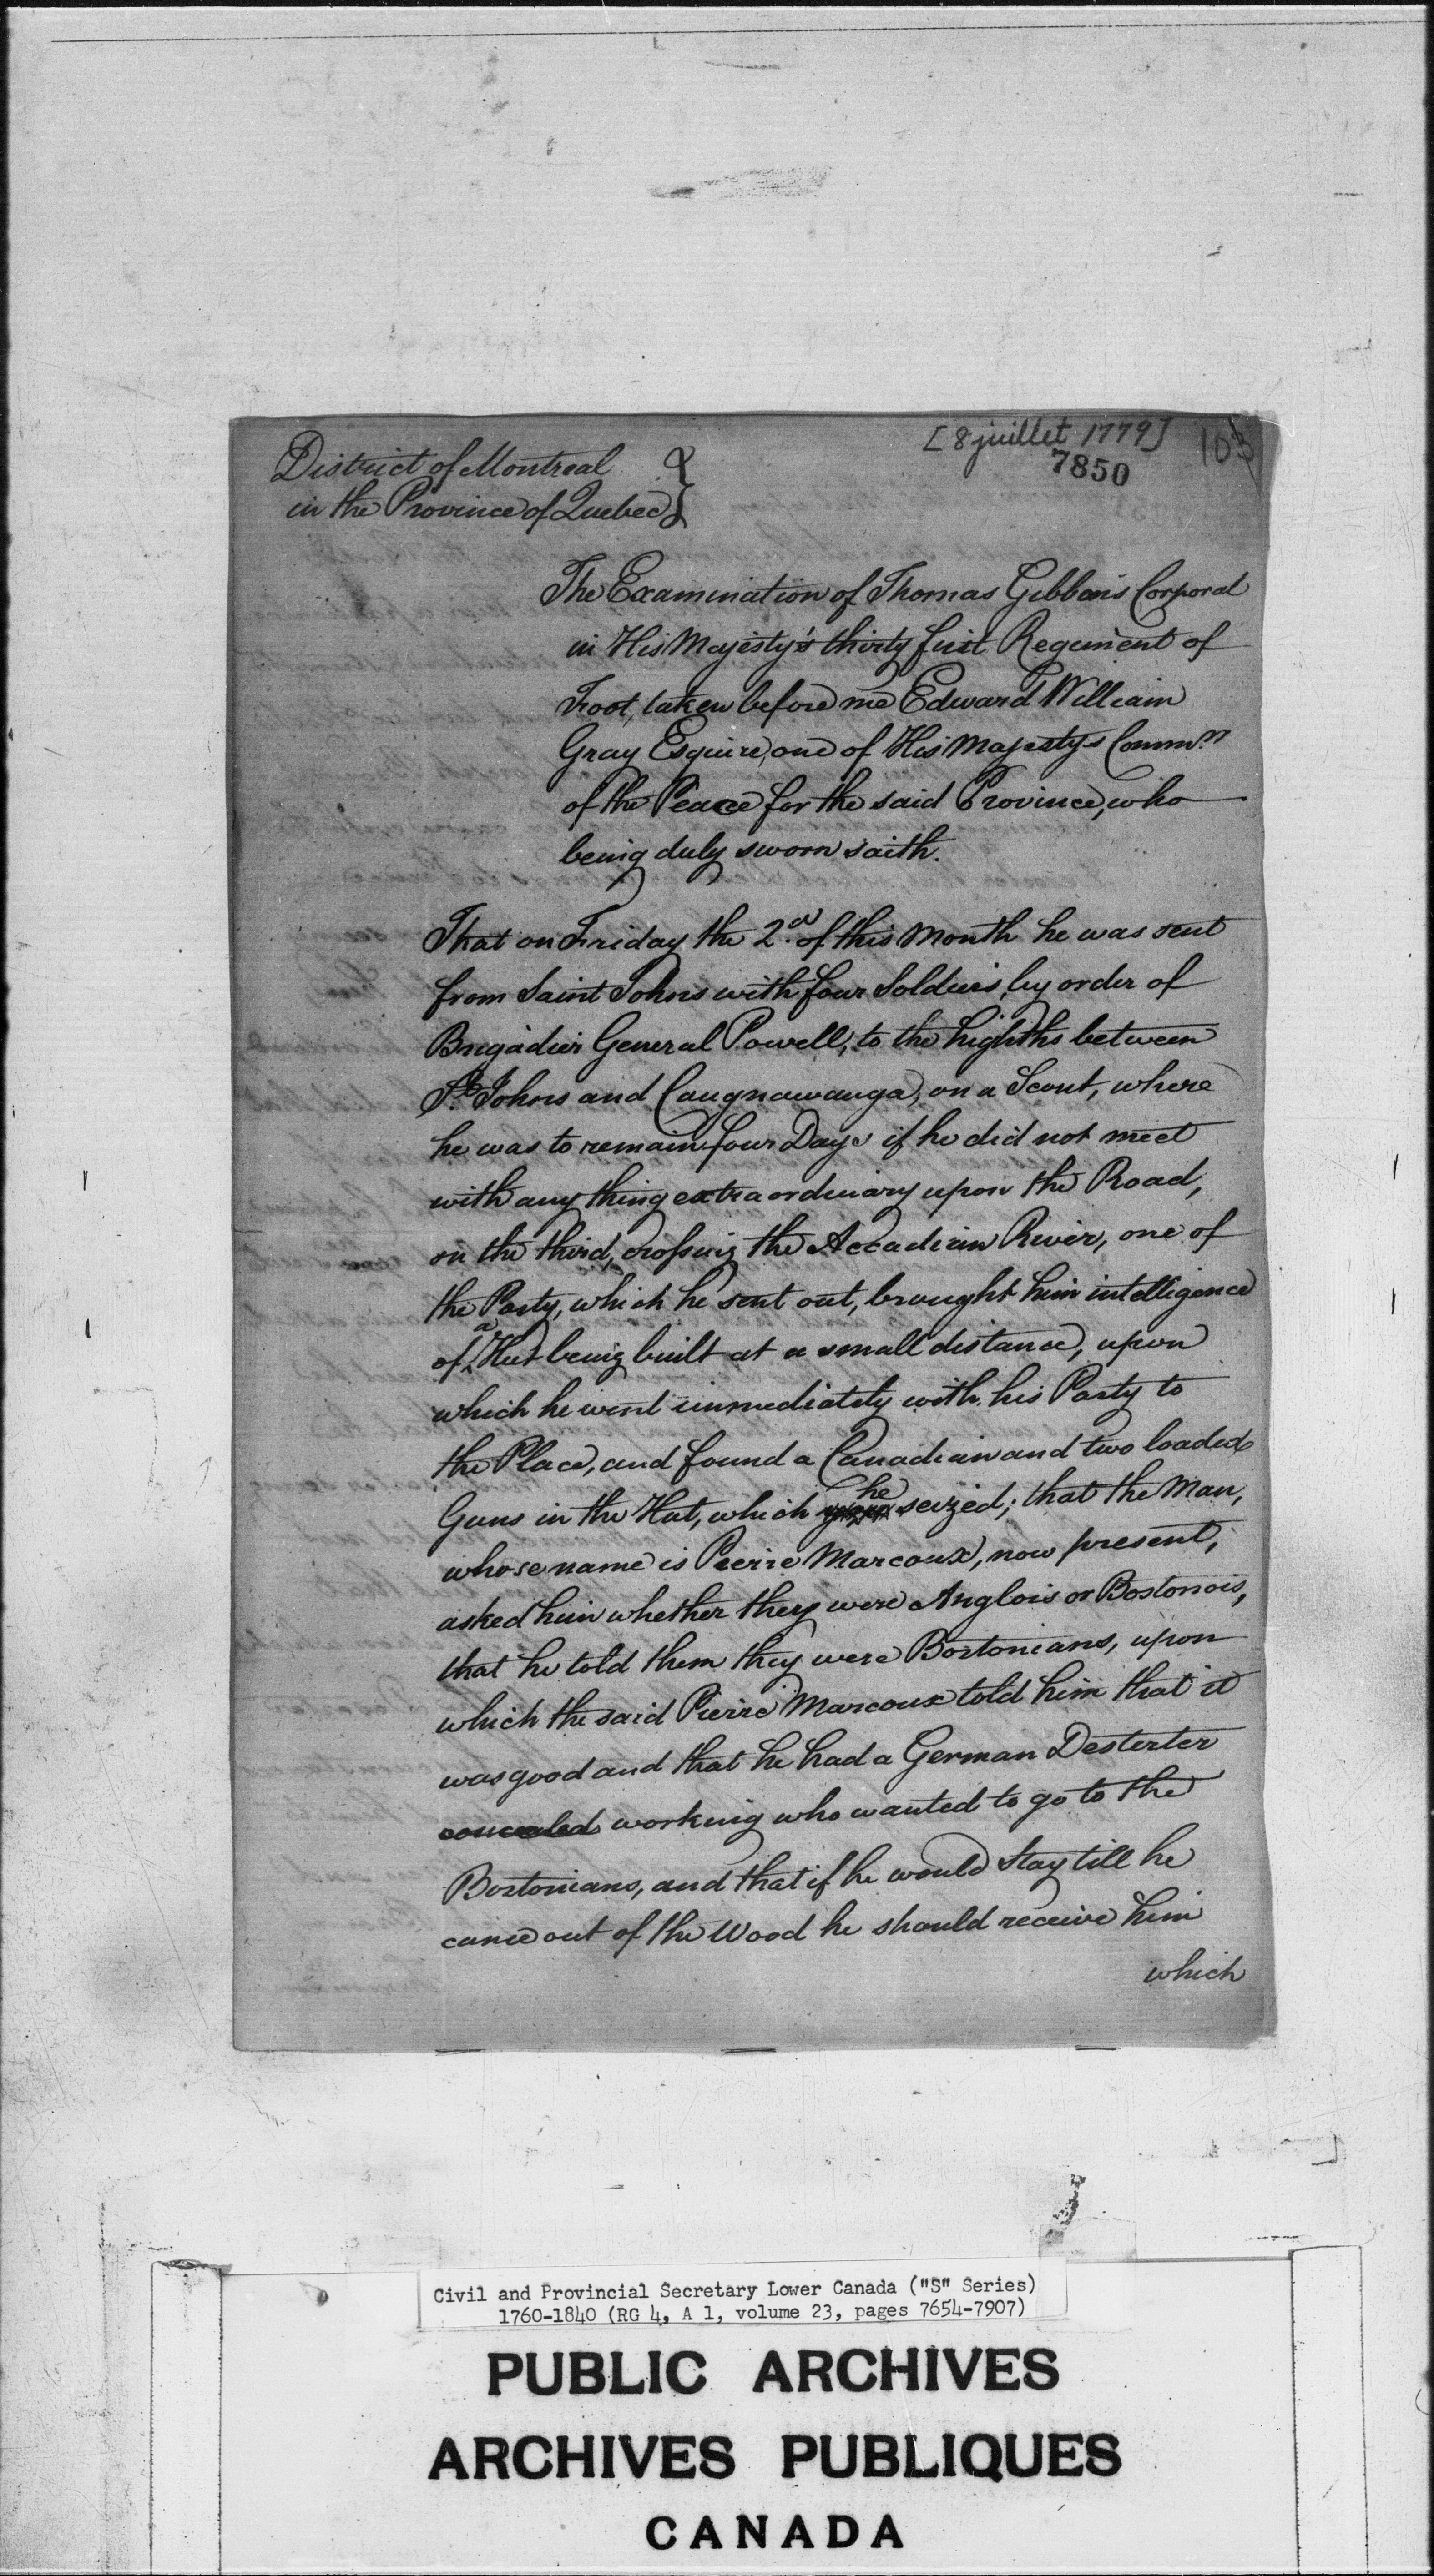 [8 juillet 1779]
7850
103
District of Montreal
in the Province of Quebec }
The Examination of Thomas Gibbons Corporal
in His Majesty's thirty first Regiment of
Foot, taken before me Edward William
Gray Esquire, one of His Majestys Commrs
of the Peace for the said Province, who
being duly sworn saith.
That on Friday the 2d. of this Month he was sent
from Saint Johns with four Soldiers, by order of
Brigadier General Powell, to the highths between
St. Johns and Caugnawauga, on a Scout, where
he was to remain four Days if he did not meet
with any thing extraordinary upon the Road,
on the third, crossing the Accadian River, one of
the Party, which he sent out, brought him intelligence
of a Hut being built at a small distance, upon
which he went immediately with his Party to
the Place, and found a Canadian and two loaded
Guns in the Hut, which he seized; that the Man,
whose name is Pierre Marcoux, now present,
asked him whether they were Anglois or Bostonois,
that he told them they were Bostonians, upon
which the said Pierre Marcoux told him that it
was good and that he had a German Desterter
concealed working who wanted to go to the
Bostonians, and that if he would Stay till he
came out of the Wood he should receive him
which
Civil and Provincial Secretary Lower Canada ("S" Series)
1760-1840 (RG 4, A 1, volume 23, pages 7654-7907)
PUBLIC ARCHIVES
ARCHIVES PUBLIQUES
CANADA